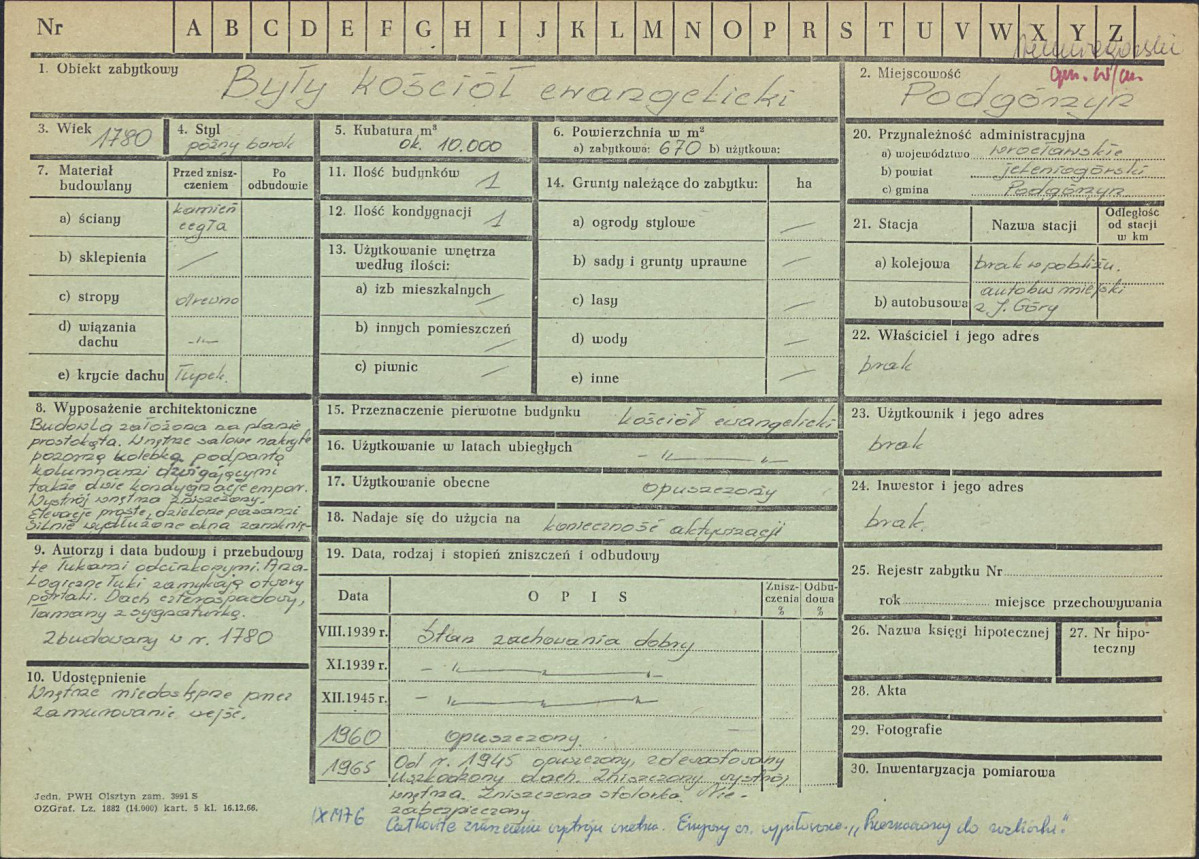 Nr A B C D E F G H I J K L M N O P R S T U V W X Y Z
1. Obiekt zabytkowy
Były kościół ewangelicki
2. Miejscowość
Podgórzyn
3. Wiek 1780
4. Styl
późny barok
5. Kubatura m³
ok. 10.000
6. Powierzchnia w m²
a) zabytkowa: 670 b) użytkowa:
7. Materiał budowlany
Przed zniszczeniem
Po odbudowie
a) ściany kamień
cegła
b) sklepienia /
c) stropy drewno
d) wiązania
dachu -"-
e) krycie dachu łupek.
8. Wyposażenie architektoniczne
Budowla założona na planie
prostokąta. Wnętrze salowe nakryte
pozorną kolebką podpartą
kolumnami dźwigającymi
także dwie kondygnacje empor.
Wystrój wnętrza zniszczony.
Elewacje proste, dzielone pasami
Silnie wydłużone okna zamknię-
9. Autorzy i data budowy i przebudowy
te łukami odcinkowymi. Ana-
logiczne łuki zamykają otwory
portali. Dach czterospadowy,
łamany z sygnaturką.
Zbudowany w r. 1780
10. Udostępnienie
Wnętrze niedostępne przez
zamurowanie wejść.
11. Ilość budynków 1
12. Ilość kondygnacji 1
13. Użytkowanie wnętrza
według ilości:
a) izb mieszkalnych /
b) innych pomieszczeń /
c) piwnic /
14. Grunty należące do zabytku: ha
a) ogrody stylowe /
b) sady i grunty uprawne /
c) lasy /
d) wody /
e) inne /
15. Przeznaczenie pierwotne budynku kościół ewangelicki
16. Użytkowanie w latach ubiegłych - " -
17. Użytkowanie obecne opuszczony
18. Nadaje się do użycia na konieczność aktywizacji
19. Data, rodzaj i stopień zniszczeń i odbudowy
Data OPIS Zniszczenia % Odbudowa %
VIII.1939 r. Stan zachowania dobry
XI.1939 r. - " -
XII.1945 r. - " -
1960 opuszczony.
1965 Od r. 1945 opuszczony, zdewastowany
uszkodzony dach. Zniszczony wystrój
wnętrza. Zniszczona stolarka. Nie-
zabezpieczony
IX 1976 Całkowite zniszczenie wystroju wnętrza. Empory
20. Przynależność administracyjna
a) województwo wrocławskie
b) powiat jeleniogórski
c) gmina Podgórzyn
21. Stacja Nazwa stacji Odległość od stacji w km
a) kolejowa brak w pobliżu.
b) autobusowa autobus miejski
z J. Góry
22. Właściciel i jego adres
brak
23. Użytkownik i jego adres
brak
24. Inwestor i jego adres
brak.
25. Rejestr zabytku Nr
rok miejsce przechowywania
26. Nazwa księgi hipotecznej
27. Nr hipoteczny
28. Akta
29. Fotografie
30. Inwentaryzacja pomiarowa
Jedn. PWH Olsztyn zam. 3991 S
OZGraf. Lz. 1882 (14.000) kart. 5 kl. 16.12.66.